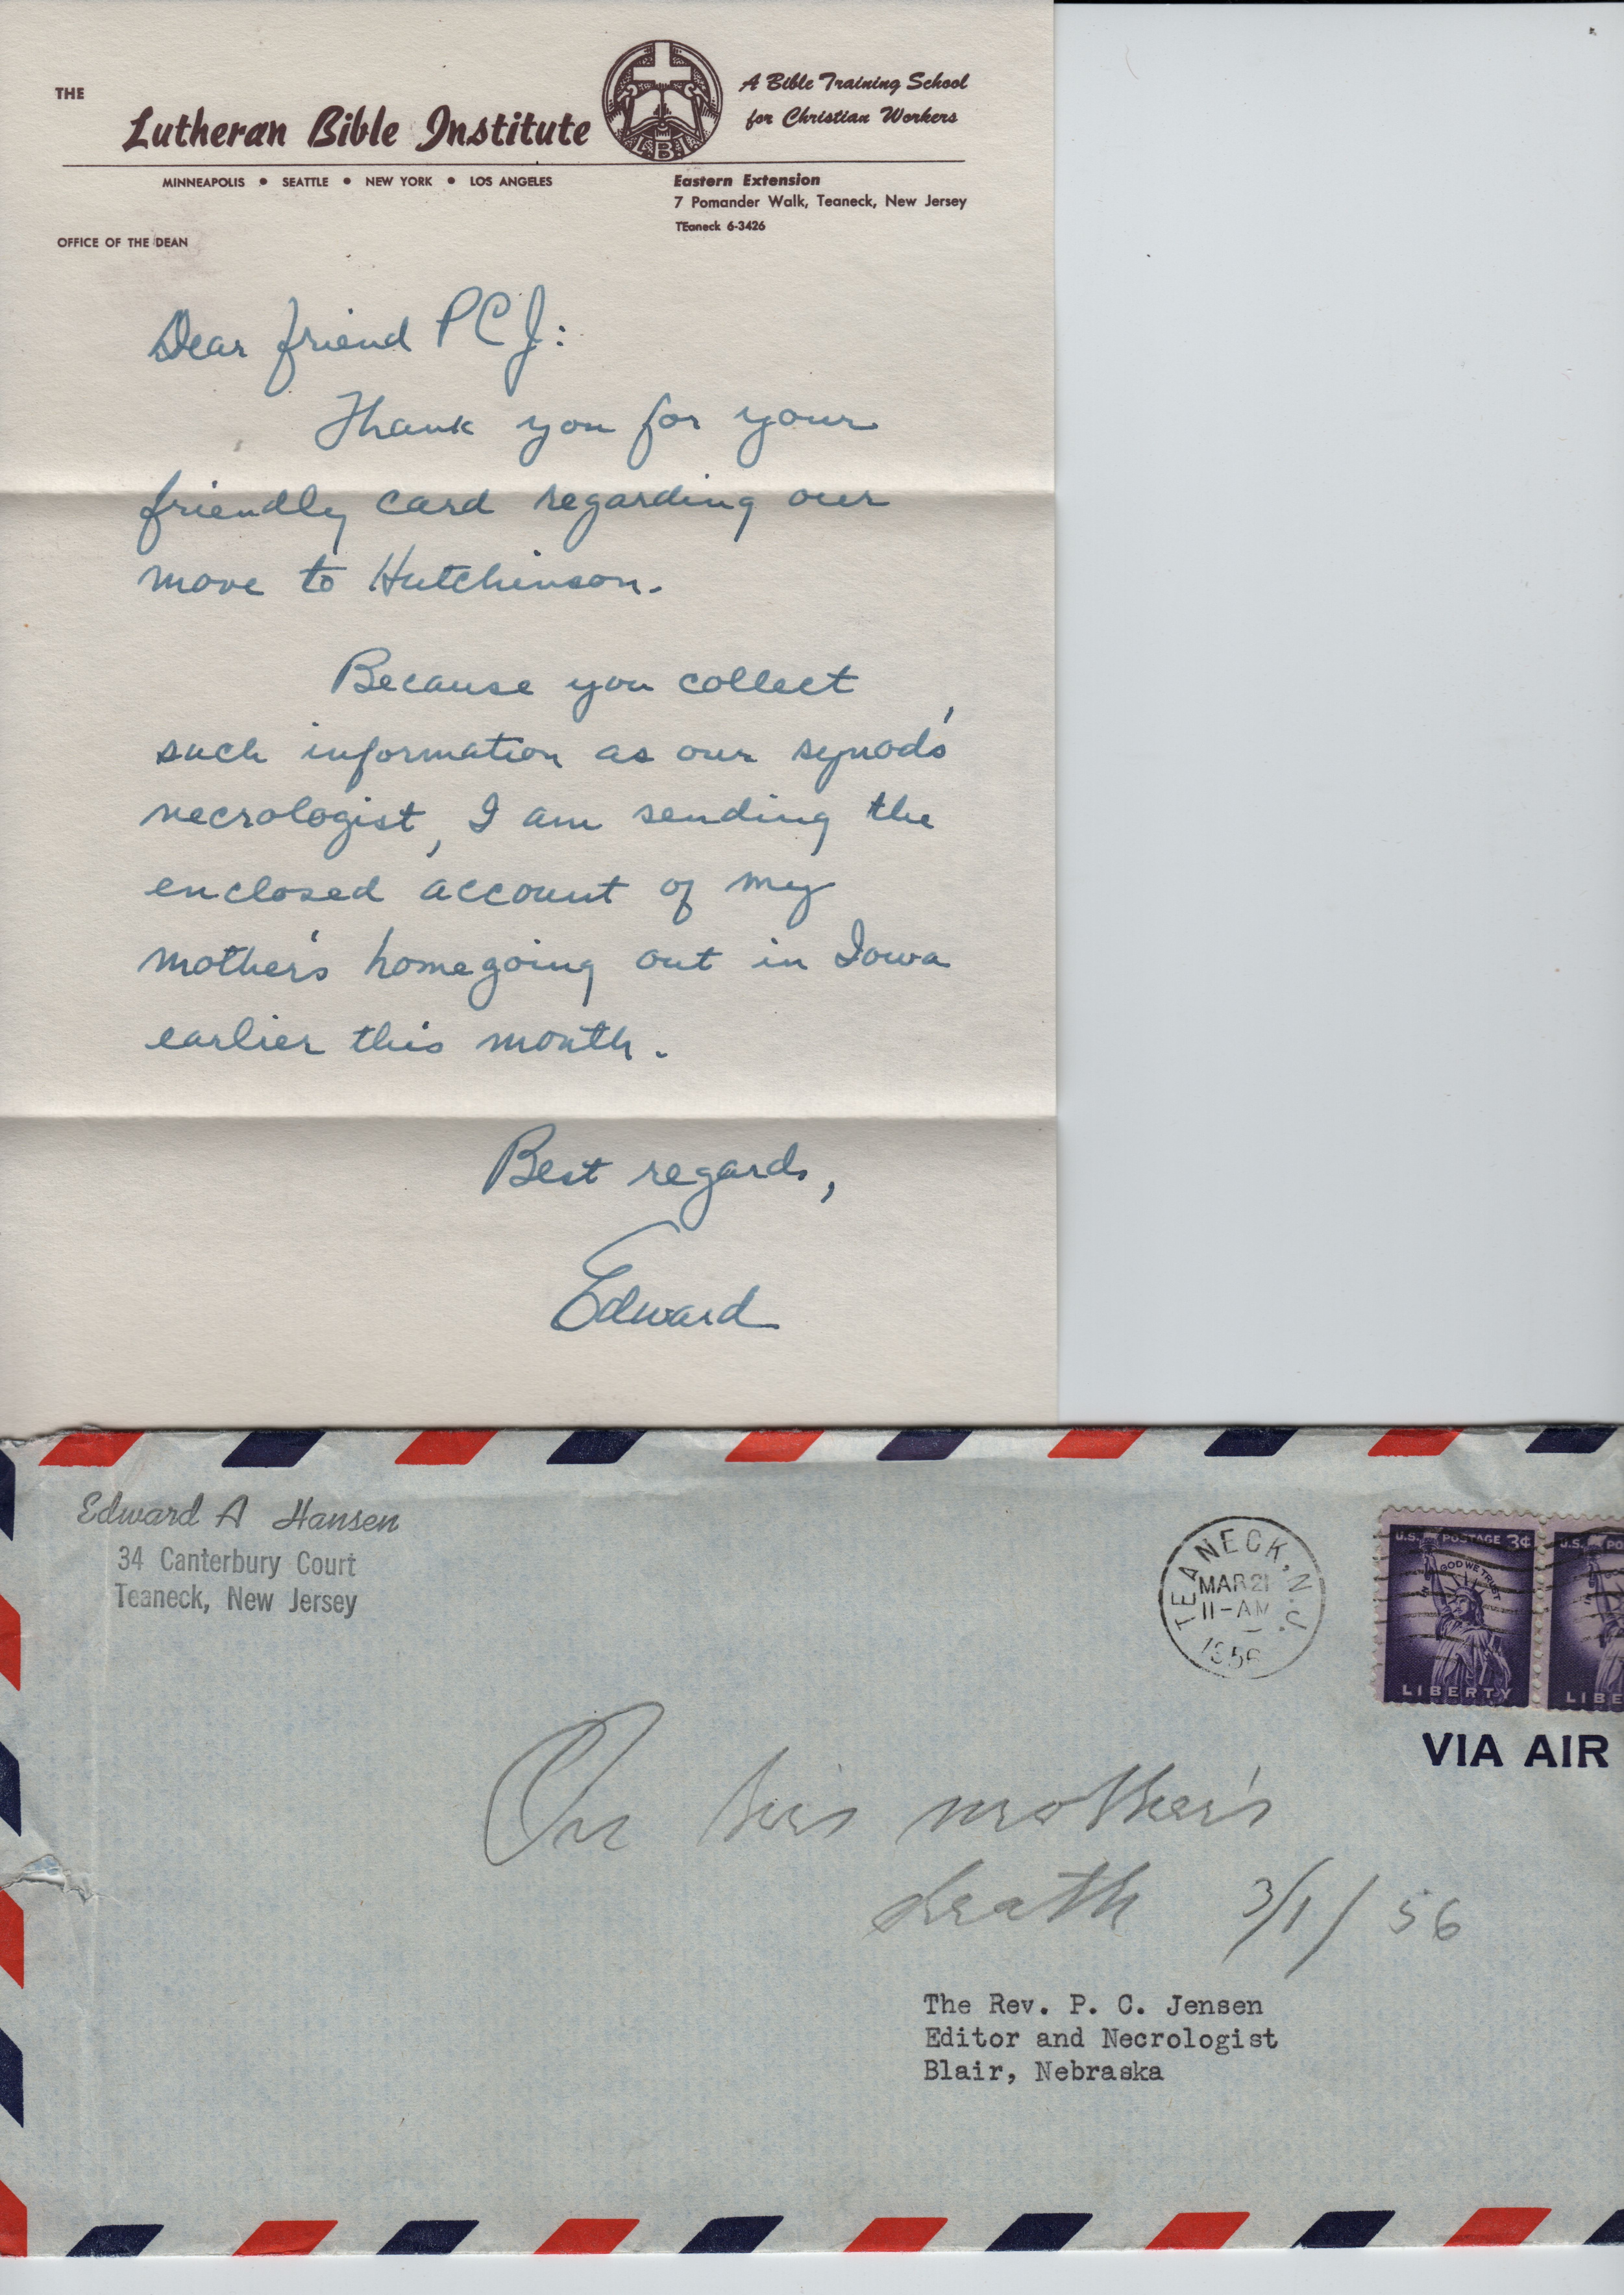 THE
Lutheran Bible Institute
LBI
A Bible Training School
for Christian Workers
MINNEAPOLIS • SEATTLE • NEW YORK • LOS ANGELES
Eastern Extension
7 Pomander Walk, Teaneck, New Jersey
TEaneck 6-3426
OFFICE OF THE DEAN
Dear friend PCJ:
Thank you for your
friendly card regarding our
move to Hutchinson.
Because you collect
such information as our synod's
necrologist, I am sending the
enclosed account of my
mother's homegoing out in Iowa
earlier this month.
Best regards,
Edward
Edward A Hansen
34 Canterbury Court
Teaneck, New Jersey
TEANECK, N.J.
MAR 21
11-AM
1956
U.S. POSTAGE 3¢
IN GOD WE TRUST
LIBERTY
U.S. PO
LIBE
VIA AIR
On his mother's
death 3/1/56
The Rev. P. C. Jensen
Editor and Necrologist
Blair, Nebraska